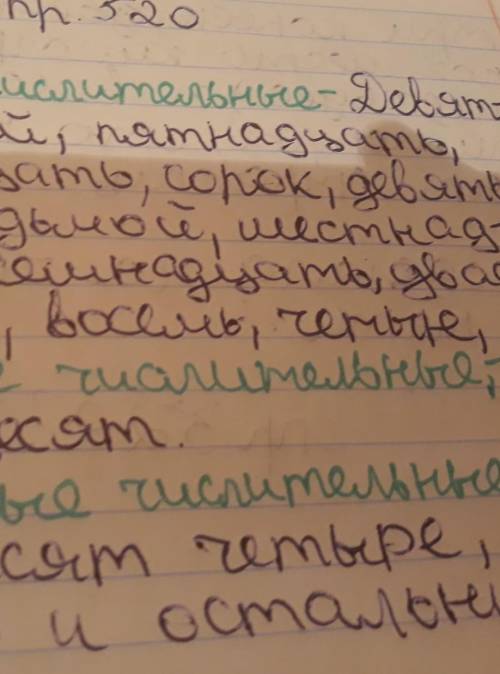 пр. 520
ислительные- Девят-
ой, пятнадцать,
зать, сорок, девять
дьмой, шестнад-
семнадцать, два
, восемь, четые,
е числительные,
есят.
ые числительные
сят четыре,
и остальн